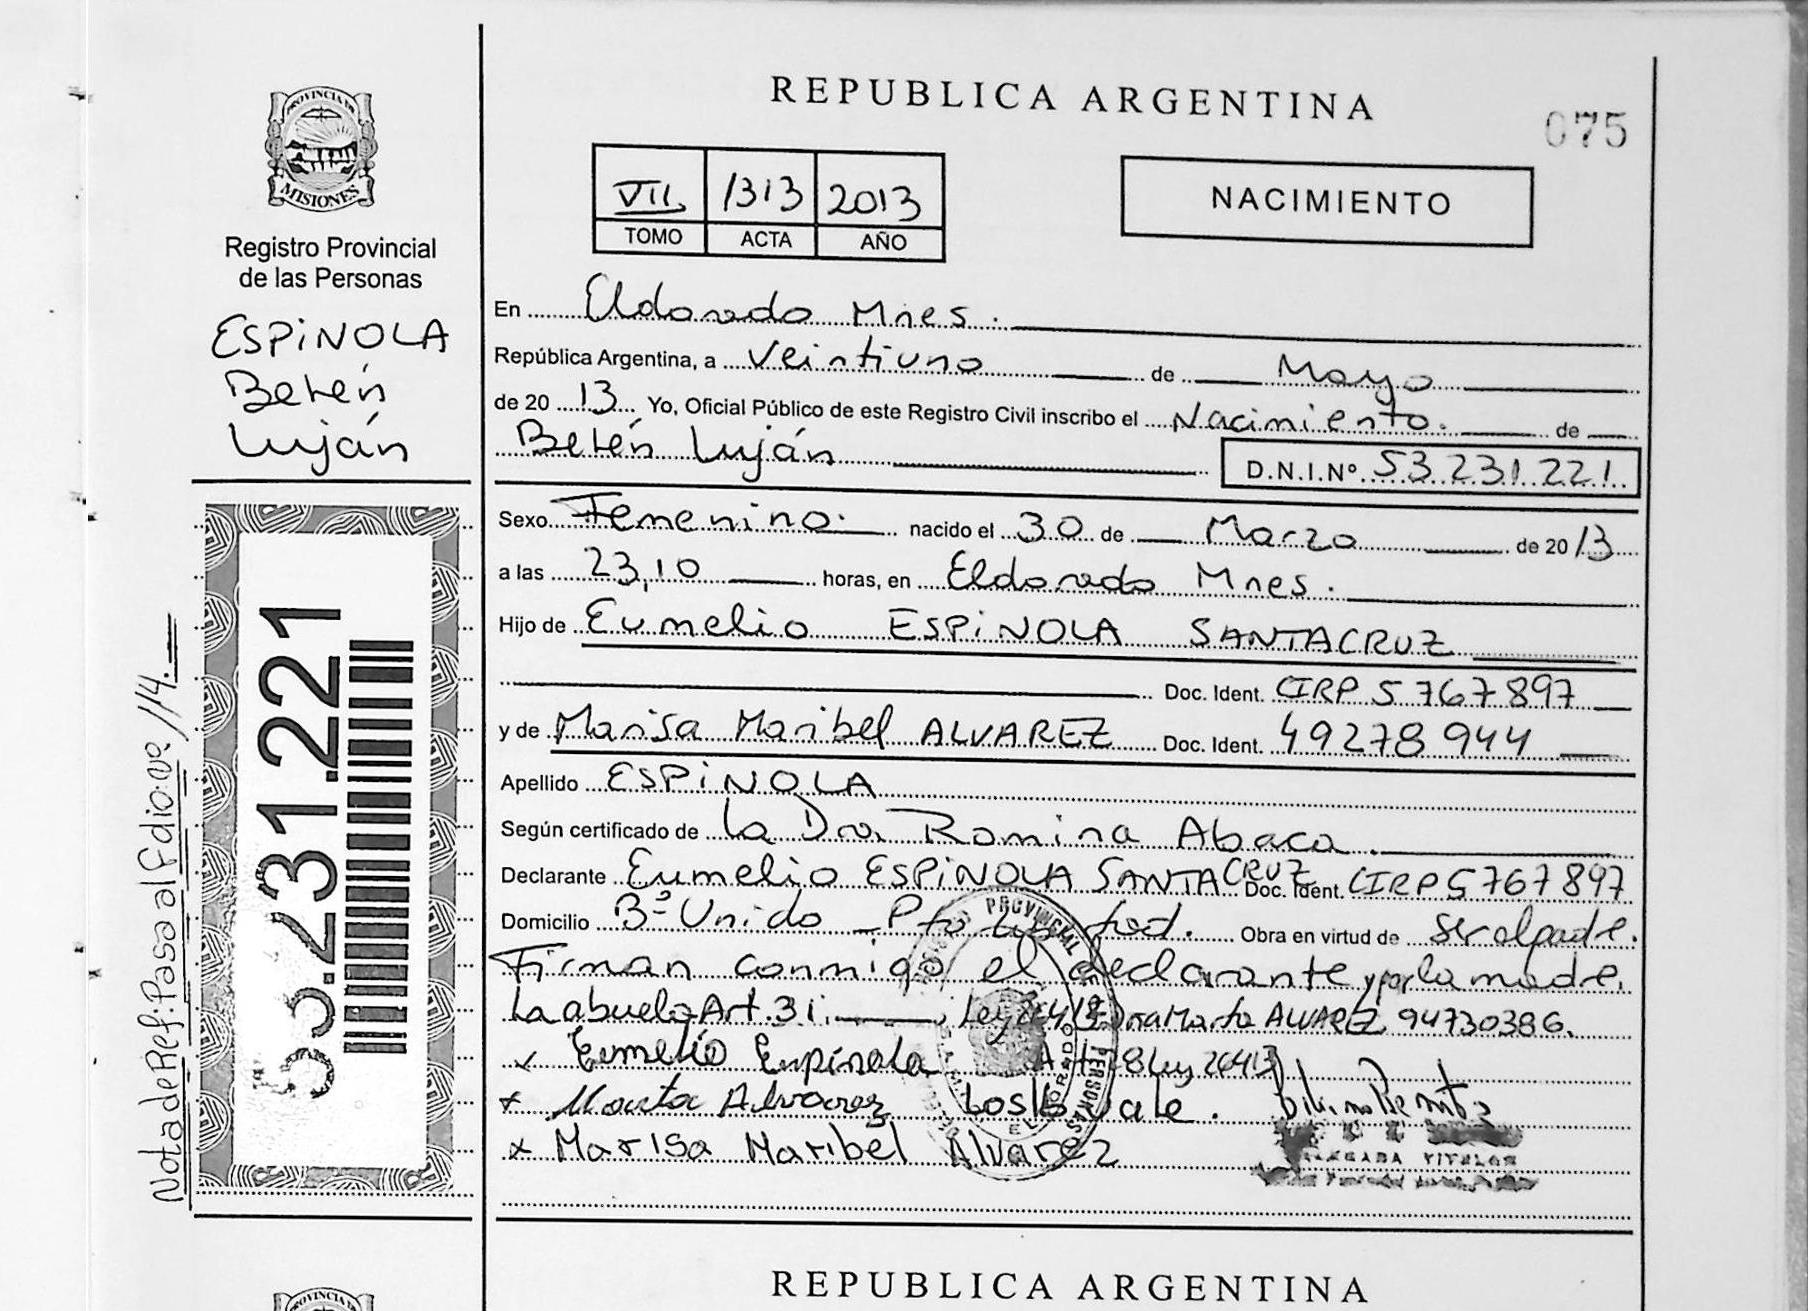 REPUBLICA ARGENTINA
075
PROVINCIA DE
MISIONES
Registro Provincial
de las Personas
ESPÍNOLA
Belén
Luján
53.231.221
Nota de Ref: Pasa al Fdio: nº /14.
VII 1313 2013
TOMO ACTA AÑO
NACIMIENTO
En Eldorado Mnes.
República Argentina, a Veintiuno de Mayo
de 20 13 Yo, Oficial Público de este Registro Civil inscribo el Nacimiento. de
Belén Luján D.N.I.Nº 53.231.221
Sexo Femenino. nacido el 30 de Marzo de 20 13
a las 23,10 horas, en Eldorado Mnes.
Hijo de Eumelio ESPÍNOLA SANTACRUZ
Doc. Ident. CIRP 5767897
y de Marisa Maribel ALVAREZ Doc. Ident. 49278944
Apellido ESPÍNOLA
Según certificado de la Dra Romina Abaca.
Declarante Eumelio ESPÍNOLA SANTACRUZ Doc. Ident. CIRP 5767897
Domicilio Bº Unido Pto Obra en virtud de ser el padre.
Firman conmigo el declarante y por la madre.
La abuela Art. 31. Ley Dña Marta ALVAREZ 94730386.
x Eumelio Espínola Ley 26413
x Marta Alvarez Vale.
x Marisa Maribel Alvarez
REPUBLICA ARGENTINA
PROVINCIA DE